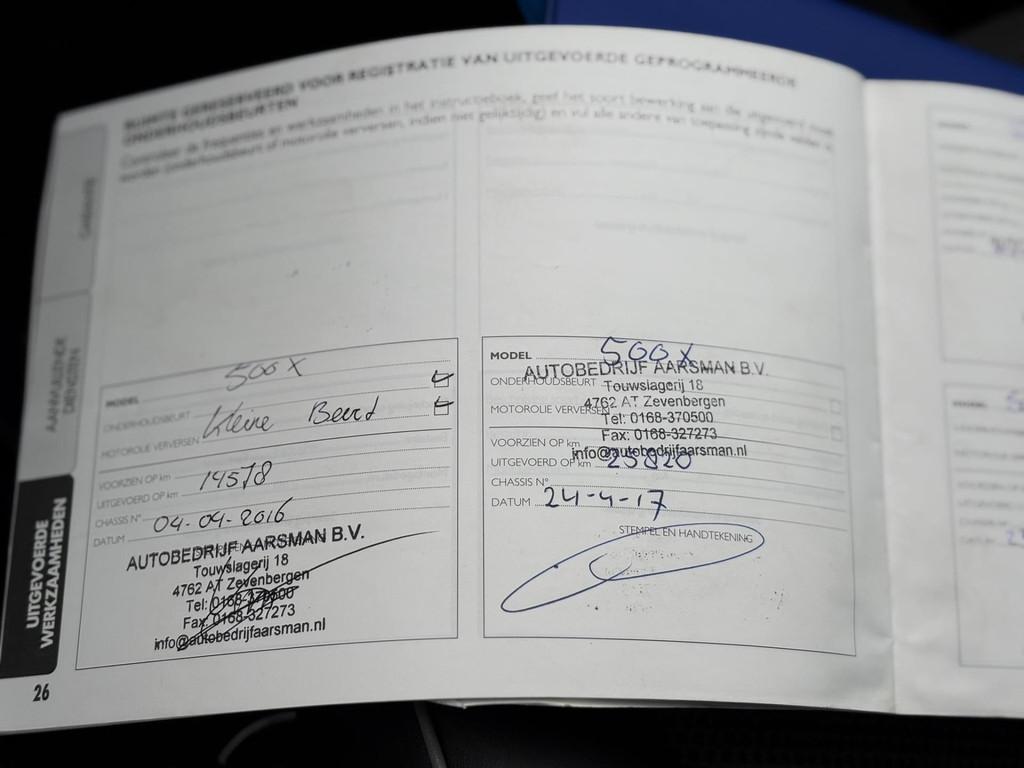 RUIMTE GERESERVEERD VOOR REGISTRATIE VAN UITGEVOERDE GEPROGRAMMEERDE
ONDERHOUDSBEURTEN
Controleer de frequenties en werkzaamheden in het instructieboek, geef het soort bewerking aan die uitgevoerd moet
worden (onderhoudsbeurt of motorolie verversen, indien niet gelijktijdig) en vul alle andere van toepassing zijnde velden in.
AANVULLENDE
DIENSTEN
UITGEVOERDE
WERKZAAMHEDEN
MODEL 500 X
ONDERHOUDSBEURT
MOTOROLIE VERVERSEN Kleine Beurt
VOORZIEN OP km
UITGEVOERD OP km 14578
CHASSIS N°
DATUM 04-04-2016
AUTOBEDRIJF AARSMAN B.V.
Touwslagerij 18
4762 AT Zevenbergen
Tel: 0168-370500
Fax: 0168-327273
info@autobedrijfaarsman.nl
MODEL 500 X
AUTOBEDRIJF AARSMAN B.V.
ONDERHOUDSBEURT Touwslagerij 18
4762 AT Zevenbergen
MOTOROLIE VERVERSEN
Tel: 0168-370500
Fax: 0168-327273
VOORZIEN OP km
info@autobedrijfaarsman.nl
UITGEVOERD OP km 25820
CHASSIS N°
DATUM 24-4-17
STEMPEL EN HANDTEKENING
26